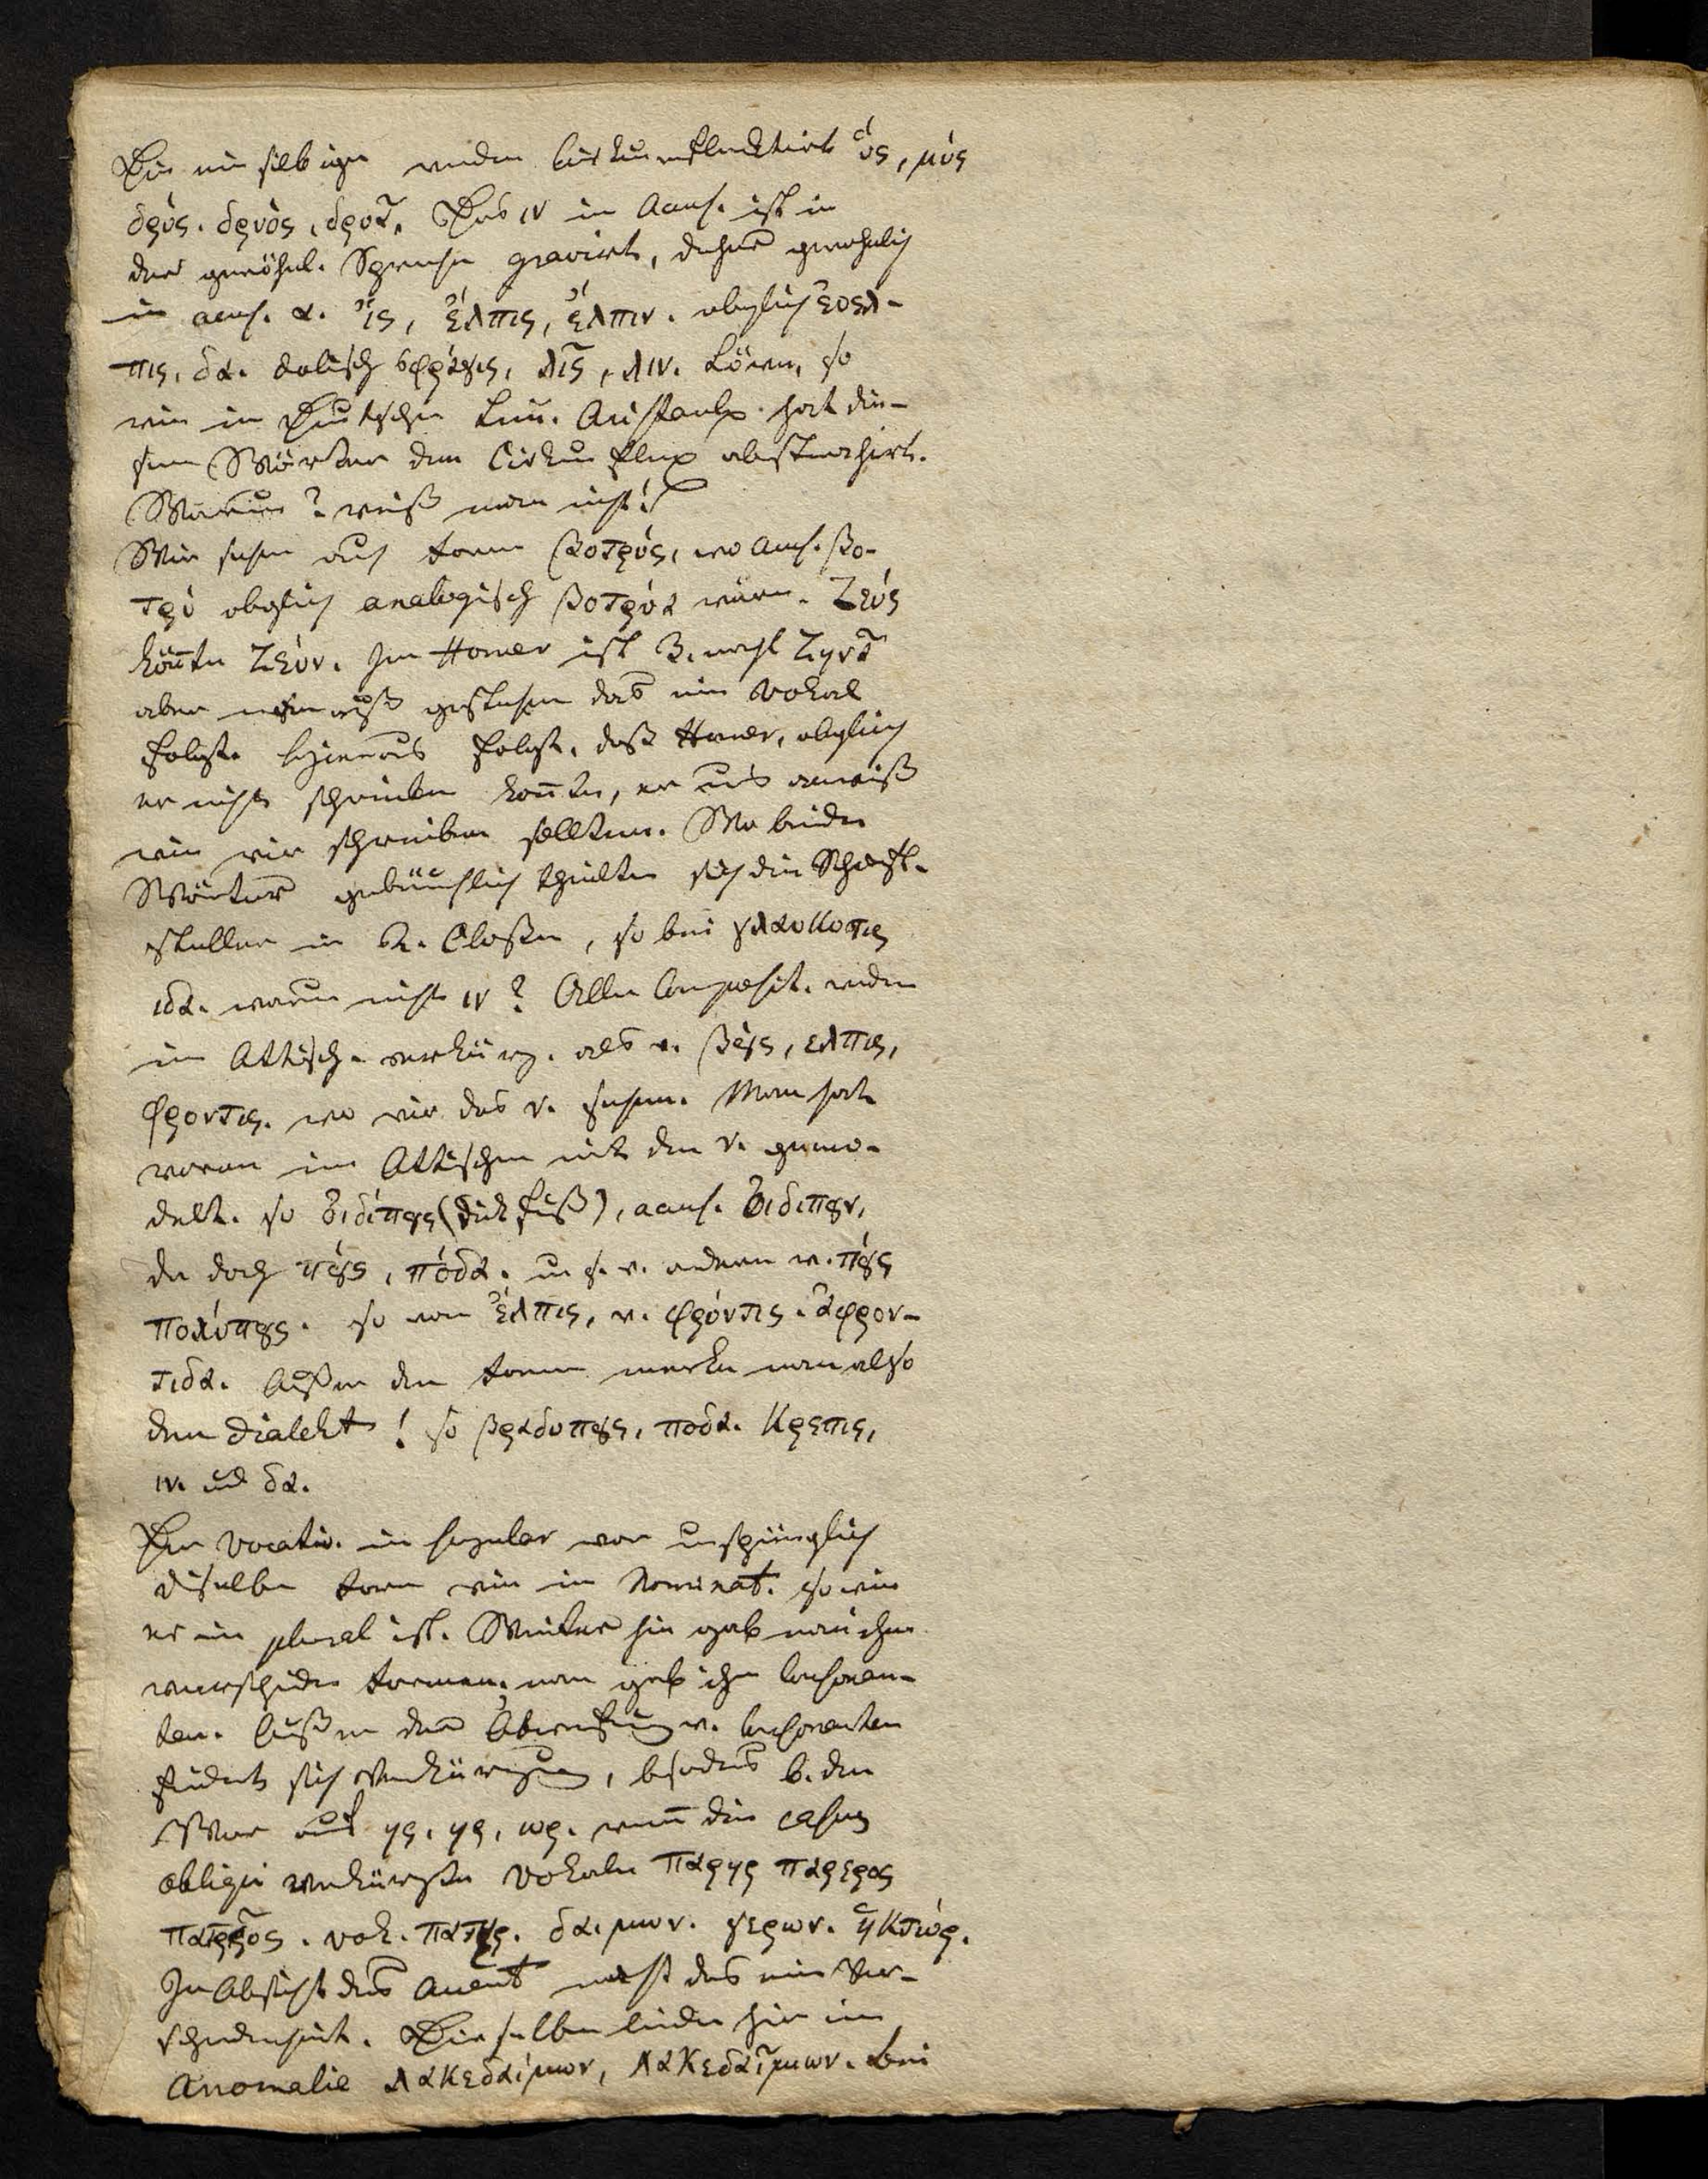 Die einsilbigen werden cirkumflektirt ὑς, μύς
δρύς. δρυὸς, δρυῒ. Das ιν im Accus. ist in
der gewöhnl. Sprache gravirt, daher gewöhnlich
im accus. α. ἴς, ἔλπις, ἔλπιν. obgleich
πις, δα. dolisch σφράγις, λῖς, λιν. Löwen, so
wie im Deutschen Leu. Aristarch. hat die-
sem Wörter den Cirkumflex abstrahirt.
Warum? weiß man nicht!
Wir sehen auch Form βοτρύς, wo Accus. βο-
τρύ obgleich analogisch βοτρύα wäre. Ζεύς
könnte Ζεύν. Im Homer ist 3. mahl Ζην
aber man muß gestehen das ein Vokal
folgt. Hieraus folgt, daß Homer, obgleich
er nicht schreiben konnte, er uns anweiß
wie wir schreiben sollten. Wo beide
Wörter gebräuchlich theilten sich die Schrift-
steller in 2. Classen, so bei γλαυκοπις
ιδα. warum nicht ιν? Alle Composit. werden
im Attisch. verkürz. als v. βους, ελπις,
φροντις. wo wir das ν. sehen. Man hat
voran im Attischen mit den ν. gewo-
delt. so Οιδίπους (Dickfuß), accus. Οιδιπουν,
da doch πούς, πόδα. u. s. w. anderen v. πούς
πολύπους. so von ἔλπις, v. φρόντις. ἀφρον-
τιδα. Außer den Form merke man also
den Dialekt! so βραδυπους, ποδα. Κρεπις,
ιν. und δα.
Der Vocativ. im Singular war ursprünglich
dieselbe Form wie im Nominat. so wie
er im plural ist. Weiter hin gab man ihm
verschiedene Formen, man gab ihm Consonan-
ten. Außer der Abwerfung v. Consonanten
findet sich Verkürzung, besonders b. den
Wör auf ης. ηρ, ωρ. wenn die casus
obliqui verkürzte Vokale
voc. πατηρ. δαιμων. γερων. ἡκτώρ.
In Absicht des Accent macht das eine Ver-
schiedenheit. Dieselben leiden hier eine
Anomalie Λακεδαίμων, Λακεδαῖμων. bei